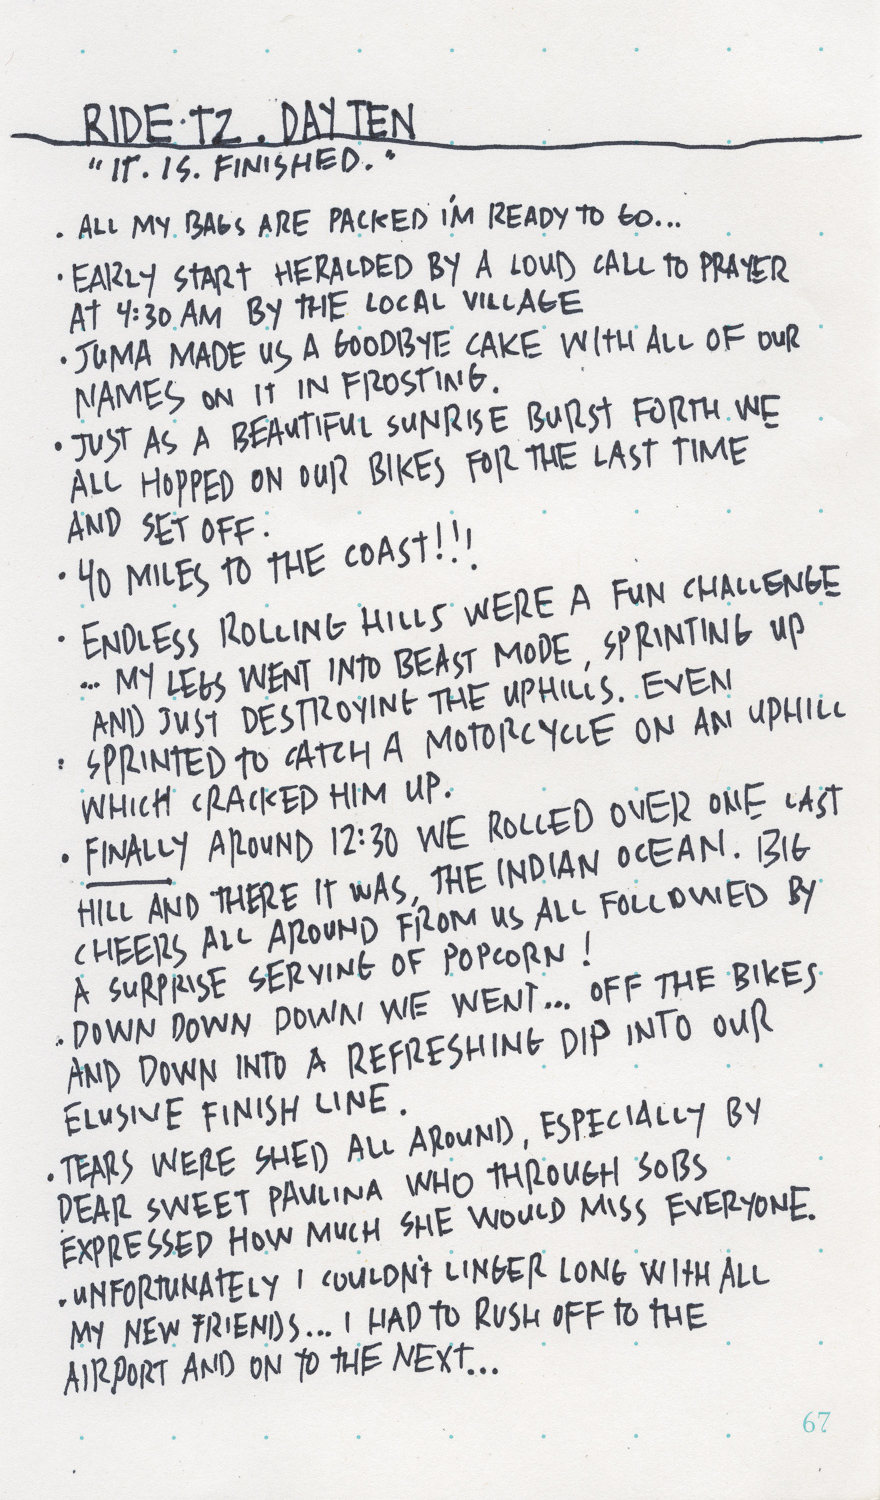 RIDE·TZ. DAY TEN
"IT. IS. FINISHED."
· ALL MY BAGS ARE PACKED I'M READY TO GO...
· EARLY START HERALDED BY A LOUD CALL TO PRAYER
AT 4:30 AM BY THE LOCAL VILLAGE
· JUMA MADE US A GOODBYE CAKE WITH ALL OF OUR
NAMES ON IT IN FROSTING.
· JUST AS A BEAUTIFUL SUNRISE BURST FORTH WE
ALL HOPPED ON OUR BIKES FOR THE LAST TIME
AND SET OFF.
· 40 MILES TO THE COAST!!!
· ENDLESS ROLLING HILLS WERE A FUN CHALLENGE
... MY LEGS WENT INTO BEAST MODE, SPRINTING UP
AND JUST DESTROYING THE UPHILLS. EVEN
: SPRINTED TO CATCH A MOTORCYCLE ON AN UPHILL
WHICH CRACKED HIM UP.
· FINALLY AROUND 12:30 WE ROLLED OVER ONE LAST
HILL AND THERE IT WAS, THE INDIAN OCEAN. BIG
CHEERS ALL AROUND FROM US ALL FOLLOWED BY
A SURPRISE SERVING OF POPCORN!
· DOWN DOWN DOWN WE WENT... OFF THE BIKES
AND DOWN INTO A REFRESHING DIP INTO OUR
ELUSIVE FINISH LINE.
· TEARS WERE SHED ALL AROUND, ESPECIALLY BY
DEAR SWEET PAULINA WHO THROUGH SOBS
EXPRESSED HOW MUCH SHE WOULD MISS EVERYONE.
· UNFORTUNATELY I COULDN'T LINGER LONG WITH ALL
MY NEW FRIENDS... I HAD TO RUSH OFF TO THE
AIRPORT AND ON TO THE NEXT...
67